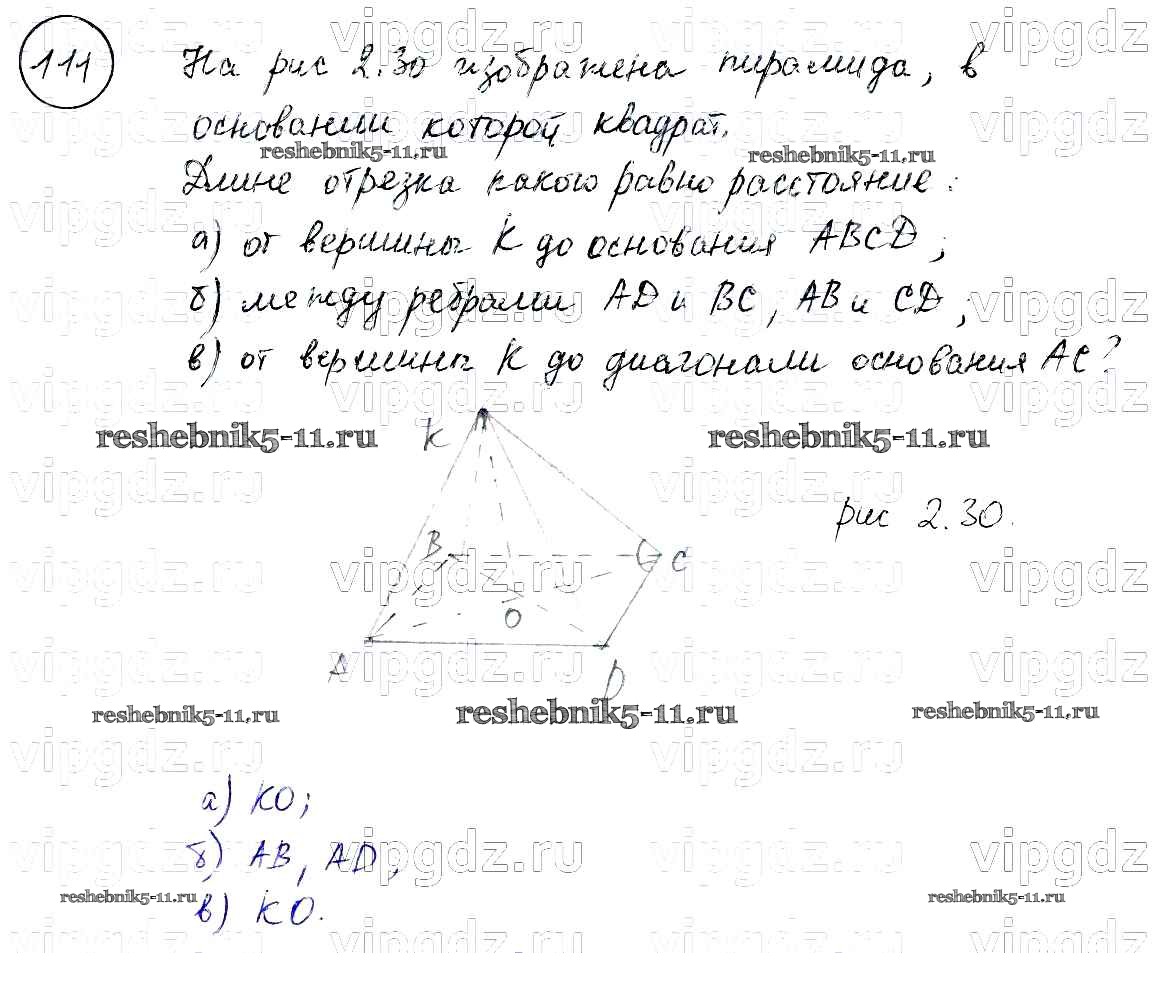 111
На рис 2.30 изображена пирамида, в
основании которой квадрат.
Длине отрезка какого равно расстояние:
а) от вершины K до основания ABCD;
б) между ребрами AD и BC, AB и CD;
в) от вершины K до диагонали основания AC?
K
рис 2.30.
B
C
O
A
D
а) KO;
б) AB, AD,
в) KO.
vipgdz.ru
reshebnik5-11.ru